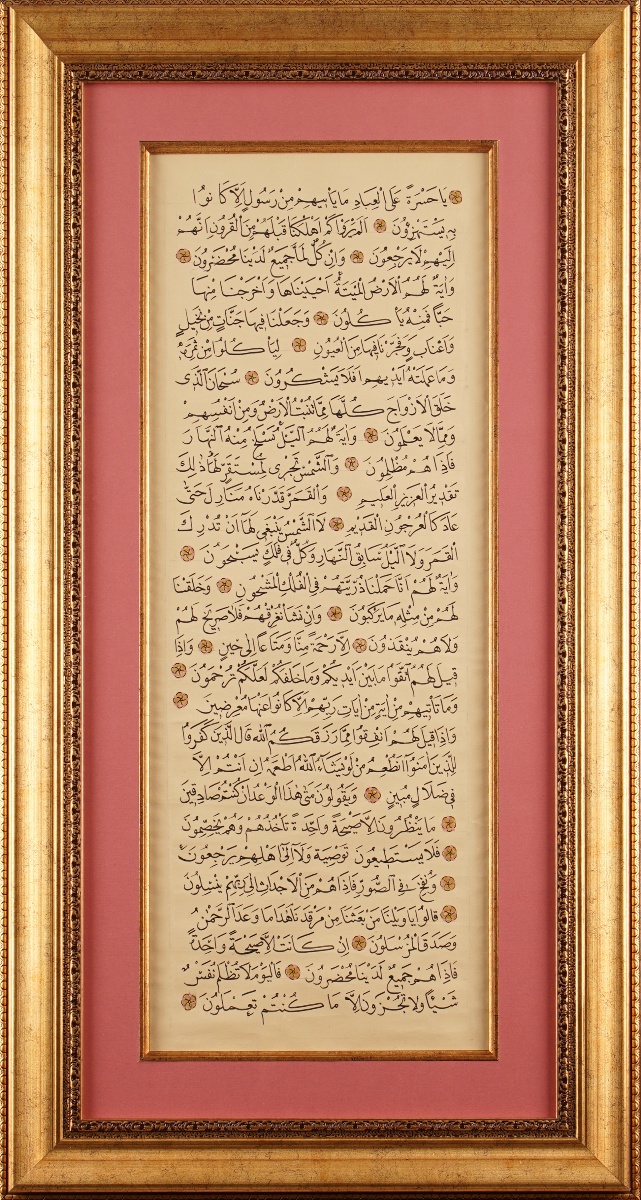 يَا حَسْرَةً عَلَى الْعِبَادِ مَا يَأْتِيهِمْ مِنْ رَسُولٍ اِلَّا كَانُوا
بِهِ يَسْتَهْزِؤُنَ اَلَمْ يَرَوْا كَمْ اَهْلَكْنَا قَبْلَهُمْ مِنَ الْقُرُونِ اَنَّهُمْ
اِلَيْهِمْ لَا يَرْجِعُونَ وَاِنْ كُلٌّ لَمَّا جَمِيعٌ لَدَيْنَا مُحْضَرُونَ
وَاٰيَةٌ لَهُمُ الْاَرْضُ الْمَيْتَةُ اَحْيَيْنَاهَا وَاَخْرَجْنَا مِنْهَا
حَبًّا فَمِنْهُ يَأْكُلُونَ وَجَعَلْنَا فِيهَا جَنَّاتٍ مِنْ نَخِيلٍ
وَاَعْنَابٍ وَفَجَّرْنَا فِيهَا مِنَ الْعُيُونِ لِيَأْكُلُوا مِنْ ثَمَرِهِ
وَمَا عَمِلَتْهُ اَيْدِيهِمْ اَفَلَا يَشْكُرُونَ سُبْحَانَ الَّذِى
خَلَقَ الْاَزْوَاجَ كُلَّهَا مِمَّا تُنْبِتُ الْاَرْضُ وَمِنْ اَنْفُسِهِمْ
وَمِمَّا لَا يَعْلَمُونَ وَاٰيَةٌ لَهُمُ الَّيْلُ نَسْلَخُ مِنْهُ النَّهَارَ
فَاِذَا هُمْ مُظْلِمُونَ وَالشَّمْسُ تَجْرِى لِمُسْتَقَرٍّ لَهَا ذٰلِكَ
تَقْدِيرُ الْعَزِيزِ الْعَلِيمِ وَالْقَمَرَ قَدَّرْنَاهُ مَنَازِلَ حَتّٰى
عَادَ كَالْعُرْجُونِ الْقَدِيمِ لَا الشَّمْسُ يَنْبَغِى لَهَا اَنْ تُدْرِكَ
الْقَمَرَ وَلَا الَّيْلُ سَابِقُ النَّهَارِ وَكُلٌّ فِى فَلَكٍ يَسْبَحُونَ
وَاٰيَةٌ لَهُمْ اَنَّا حَمَلْنَا ذُرِّيَّتَهُمْ فِى الْفُلْكِ الْمَشْحُونِ وَخَلَقْنَا
لَهُمْ مِنْ مِثْلِهِ مَا يَرْكَبُونَ وَاِنْ نَشَأْ نُغْرِقْهُمْ فَلَا صَرِيخَ لَهُمْ
وَلَا هُمْ يُنْقَذُونَ اِلَّا رَحْمَةً مِنَّا وَمَتَاعًا اِلٰى حِينٍ وَاِذَا
قِيلَ لَهُمُ اتَّقُوا مَا بَيْنَ اَيْدِيكُمْ وَمَا خَلْفَكُمْ لَعَلَّكُمْ تُرْحَمُونَ
وَمَا تَأْتِيهِمْ مِنْ اٰيَةٍ مِنْ اٰيَاتِ رَبِّهِمْ اِلَّا كَانُوا عَنْهَا مُعْرِضِينَ
وَاِذَا قِيلَ لَهُمْ اَنْفِقُوا مِمَّا رَزَقَكُمُ اللّٰهُ قَالَ الَّذِينَ كَفَرُوا
لِلَّذِينَ اٰمَنُوا اَنُطْعِمُ مَنْ لَوْ يَشَاءُ اللّٰهُ اَطْعَمَهُ اِنْ اَنْتُمْ اِلَّا
فِى ضَلَالٍ مُبِينٍ وَيَقُولُونَ مَتٰى هٰذَا الْوَعْدُ اِنْ كُنْتُمْ صَادِقِينَ
مَا يَنْظُرُونَ اِلَّا صَيْحَةً وَاحِدَةً تَأْخُذُهُمْ وَهُمْ يَخِصِّمُونَ
فَلَا يَسْتَطِيعُونَ تَوْصِيَةً وَلَا اِلٰى اَهْلِهِمْ يَرْجِعُونَ
وَنُفِخَ فِى الصُّورِ فَاِذَا هُمْ مِنَ الْاَجْدَاثِ اِلٰى رَبِّهِمْ يَنْسِلُونَ
قَالُوا يَا وَيْلَنَا مَنْ بَعَثَنَا مِنْ مَرْقَدِنَا هٰذَا مَا وَعَدَ الرَّحْمٰنُ
وَصَدَقَ الْمُرْسَلُونَ اِنْ كَانَتْ اِلَّا صَيْحَةً وَاحِدَةً
فَاِذَا هُمْ جَمِيعٌ لَدَيْنَا مُحْضَرُونَ فَالْيَوْمَ لَا تُظْلَمُ نَفْسٌ
شَيْئًا وَلَا تُجْزَوْنَ اِلَّا مَا كُنْتُمْ تَعْمَلُونَ